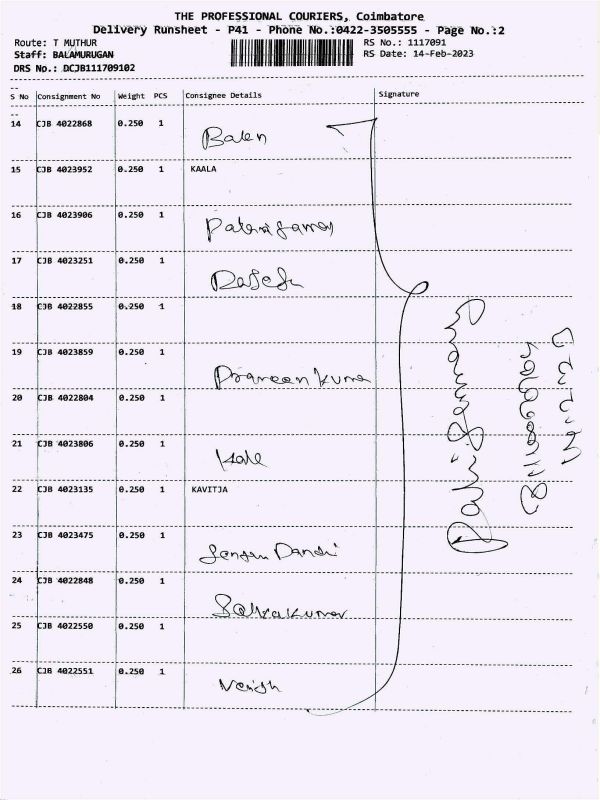 THE PROFESSIONAL COURIERS, Coimbatore
Delivery Runsheet - P41 - Phone No.:0422-3505555 - Page No.:2
Route: T MUTHUR
RS No.: 1117091
Staff: BALAMURUGAN
RS Date: 14-Feb-2023
DRS No.: DCJB111709102
S No Consignment No Weight PCS Consignee Details Signature
14 CJB 4022868 0.250 1 Balen
15 CJB 4023952 0.250 1 KAALA
16 CJB 4023906 0.250 1
17 CJB 4023251 0.250 1 Rajesh
18 CJB 4022855 0.250 1
19 CJB 4023859 0.250 1 Praveen Kumar
20 CJB 4022804 0.250 1
21 CJB 4023806 0.250 1 Kale
22 CJB 4023135 0.250 1 KAVITJA
23 CJB 4023475 0.250 1
24 CJB 4022848 0.250 1
25 CJB 4022550 0.250 1
26 CJB 4022551 0.250 1